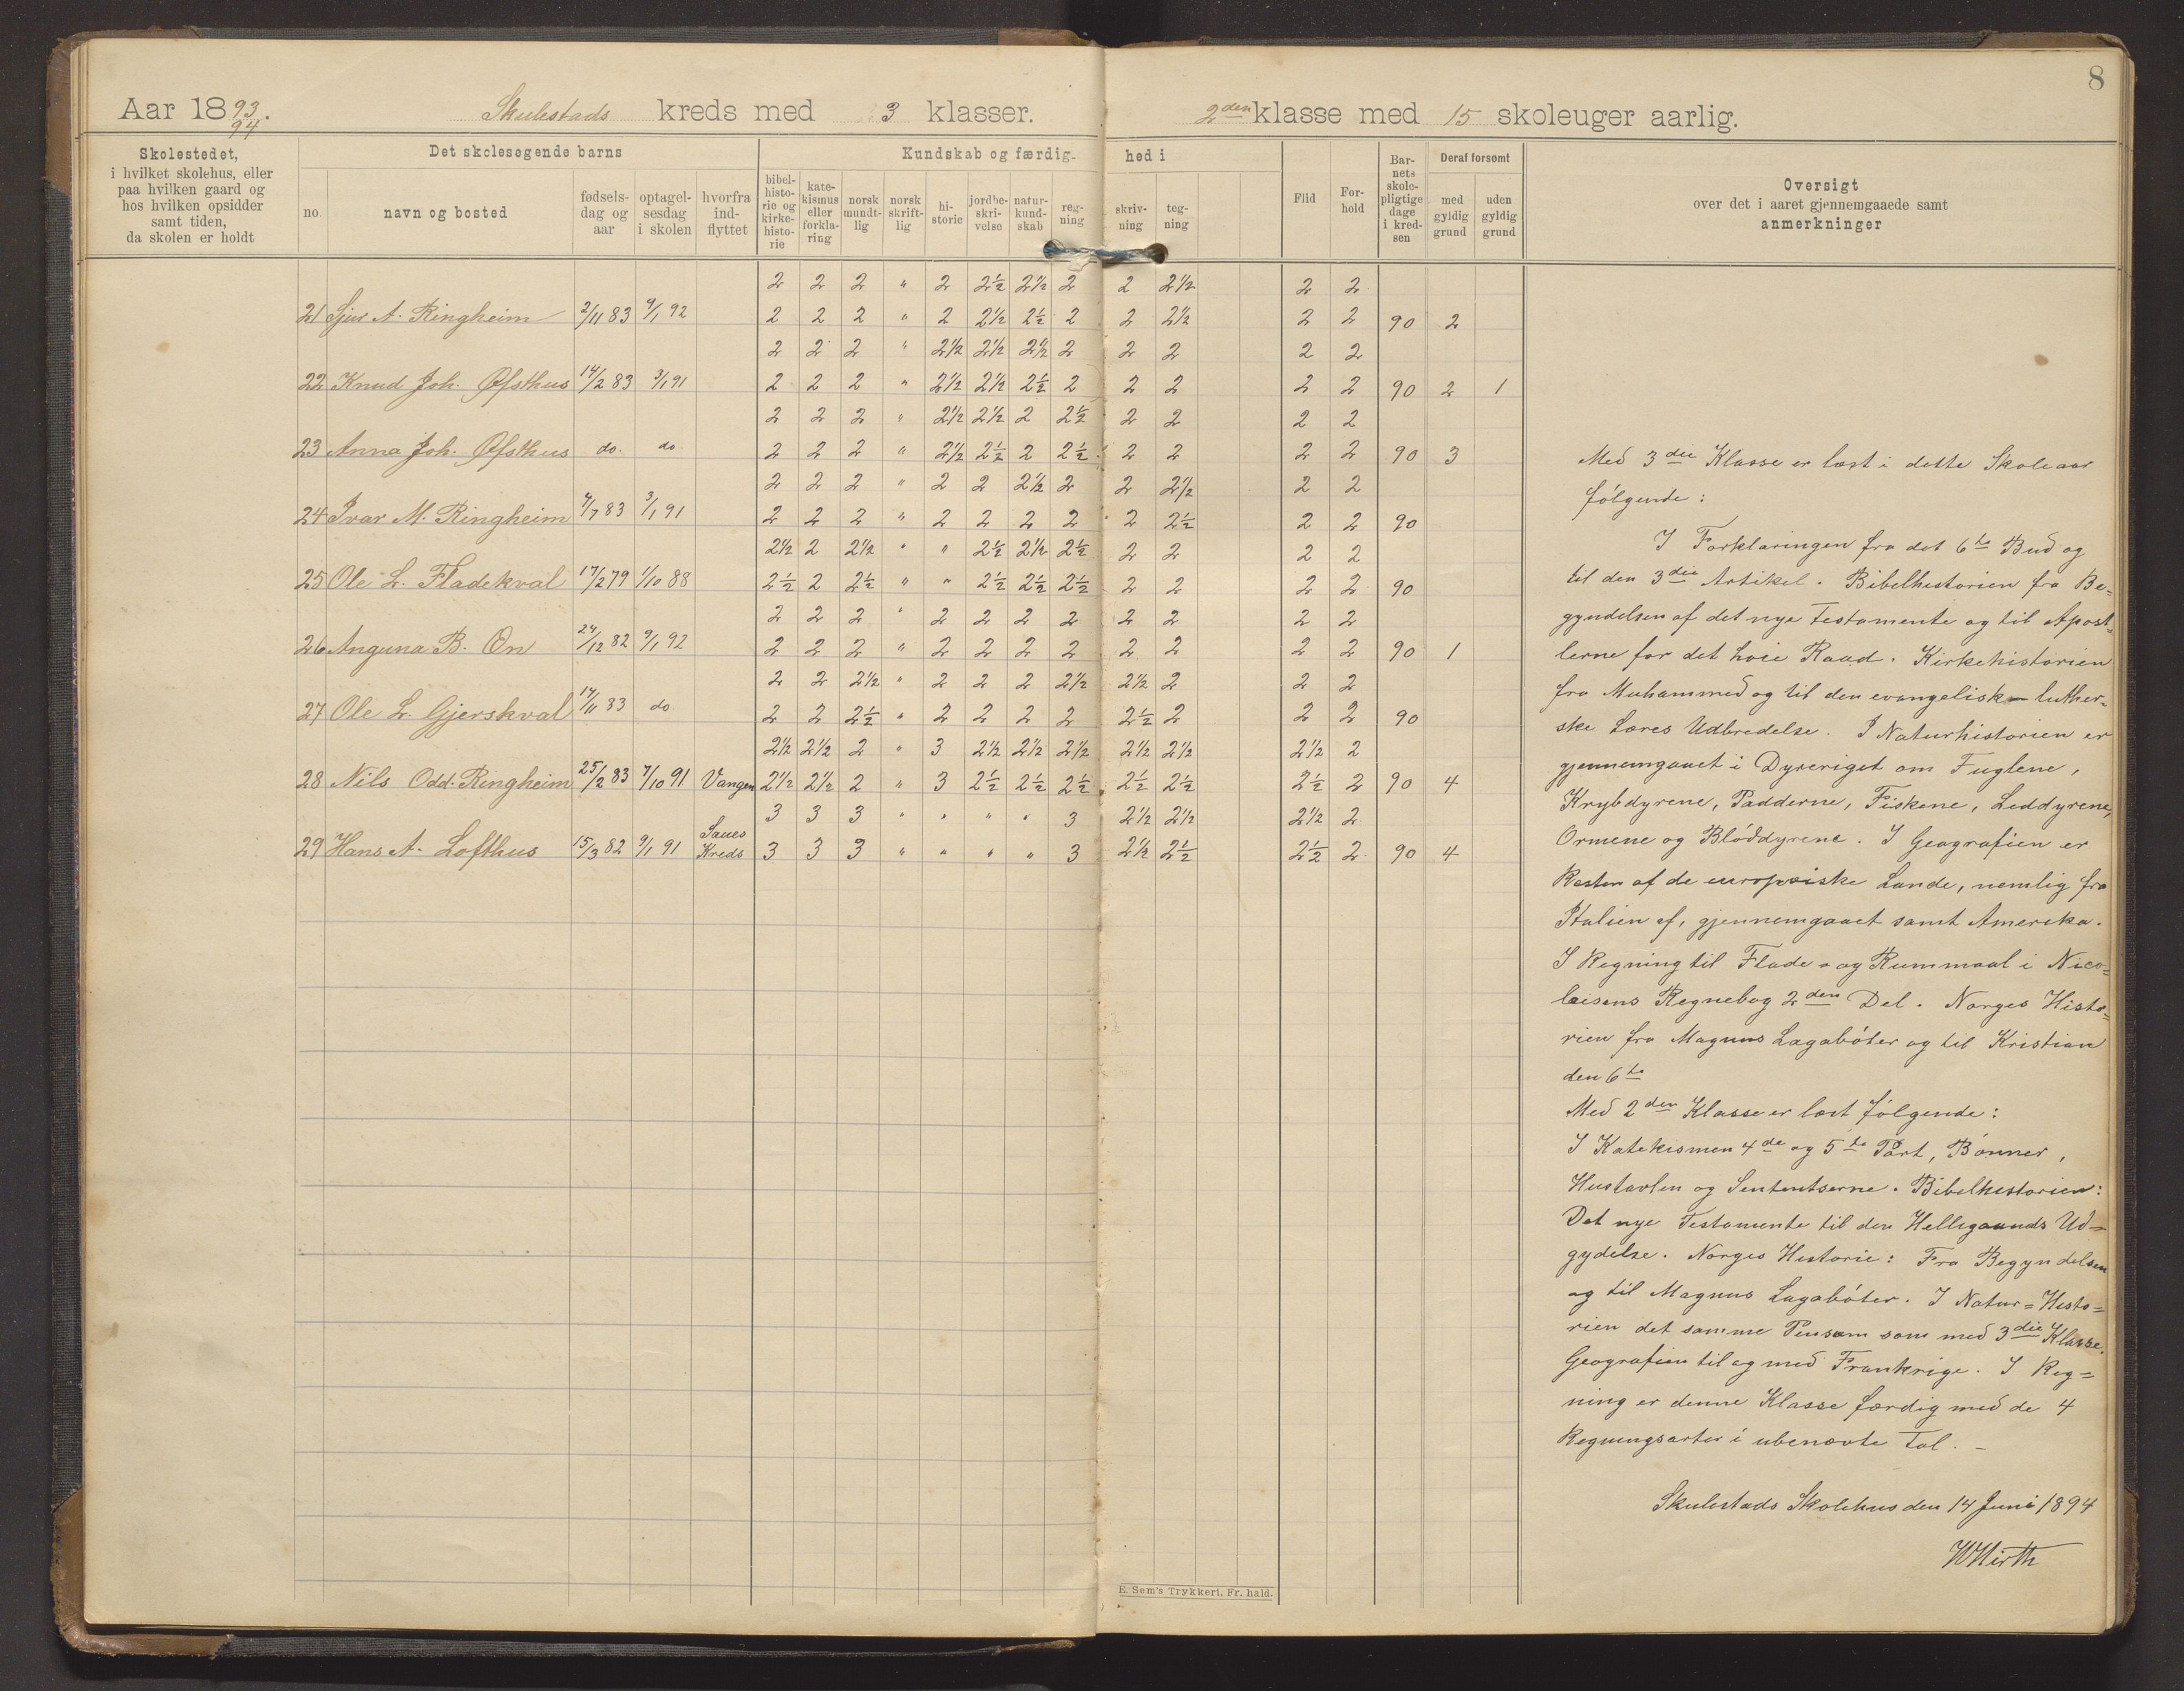 8
Aar 1893/94. Skulestads kreds med 3 klasser. 2den klasse med 15 skoleuger aarlig.
Skolestedet,
i hvilket skolehus, eller
paa hvilken gaard og
hos hvilken opsidder
samt tiden,
da skolen er holdt
Det skolesøgende barns
no.
navn og bosted
fødsels-
dag og
aar
optagel-
sesdag
i skolen
hvorfra
ind-
flyttet
Kundskab og færdig-
hed i
bibel-
histo-
rie og
kirke-
histo-
rie
kate-
kismus
eller
forkla-
ring
norsk
mundt-
lig
norsk
skrift-
lig
hi-
storie
jordbe-
skri-
velse
natur-
kund-
skab
reg-
ning
skriv-
ning
teg-
ning
Flid
For-
hold
Bar-
nets
skole-
pligtige
dage
i kred-
sen
Deraf forsømt
med
gyldig
grund
uden
gyldig
grund
Oversigt
over det i aaret gjennemgaaede samt
anmerkninger
2 2 2 " 2 2½ 2½ 2 2 2½ 2 2
21 Sjur A. Ringheim 2/11 83 9/1 92 2 2 2 " 2 2½ 2½ 2 2 2½ 2 2 90 2
2 2 2 " 2½ 2½ 2½ 2 2 2 2 2
22 Knud Joh. Øfsthus 14/2 83 3/1 91 2 2 2 " 2½ 2½ 2½ 2 2 2 2 2 90 2 1
2 2 2 " 2½ 2½ 2 2½ 2 2 2 2
23 Anna Joh. Øfsthus do. do 2 2 2 " 2½ 2½ 2 2½ 2 2 2 2 90 3
2 2 2 " 2 2 2½ 2 2 2½ 2 2
24 Ivar M. Ringheim 4/7 83 3/1 91 2 2 2 " 2 2 2 2 2 2½ 2 2 90
2½ 2 2½ " " 2½ 2½ 2½ 2 2 2 2
25 Ole L. Fladekval 17/2 79 1/10 88 2½ 2 2½ " " 2½ 2½ 2½ 2 2 2 2 90
2 2 2 " 2 2 2 2 2 2 2 2
26 Anguna B. Øn 24/12 82 9/1 92 2 2 2 " 2 2 2 2 2 2 2 2 90 1
2 2 2½ " 2 2 2 2½ 2½ 2 2 2
27 Ole L. Gjerskval 14/11 83 do 2 2 2½ " 2 2 2 2 2½ 2 2 2 90
2½ 2½ 2 " 3 2½ 2½ 2½ 2½ 2½ 2½ 2
28 Nils Odd. Ringheim 25/2 83 7/10 91 Vangen 2½ 2½ 2 " 3 2½ 2½ 2½ 2½ 2½ 2½ 2 90 4
3 3 3 " " " " 3 2½ 2½ 2½ 2
29 Hans A. Lofthus 15/3 82 9/1 91 Saues Kreds 3 3 3 " " " " 3 2½ 2½ 2½ 2 90 4
Med 3die Klasse er læst i dette Skoleaar
følgende:
I Forklaringen fra det 6te Bud og
til den 3die Artikel. Bibelhistorien fra Be=
gyndelsen af det nye Testamente og til Apost=
lerne for det høie Raad. Kirkehistorien
fra Muhammed og til den evangelisk-luther=
ske Læres Udbredelse. I Naturhistorien er
gjennemgaaet i Dyreriget om Fuglene,
Krybdyrene, Padderne, Fiskene, Leddyrene,
Ormene og Bløddyrene. I Geografien er
Resten af de europæiske Lande, nemlig fra
Italien af, gjennemgaaet samt Amerika.
I Regning til Flade- og Rummaal i Nico=
laisens Regnebog 2den Del. Norges Histo=
rien fra Magnus Lagabøter og til Kristian
den 6te
Med 2den Klasse er læst følgende:
I Katekismen 4de og 5te Part, Bønner,
Hustavlen og Sententserne. Bibelhistorien:
Det nye Testamente til den Helligaands Ud=
gydelse. Norges Historie: Fra Begyndelsen
og til Magnus Lagabøter. I Natur=Histo=
rien det samme Pensum som med 3die Klasse.
Geografien til og med Frankrige. I Reg=
ning er denne Klasse færdig med de 4
Regningsarter i ubenævte Tal. -
Skulestads Skolehus den 14 Juni 1894
W Hirth
E. Sem's Trykkeri, Fr. hald.